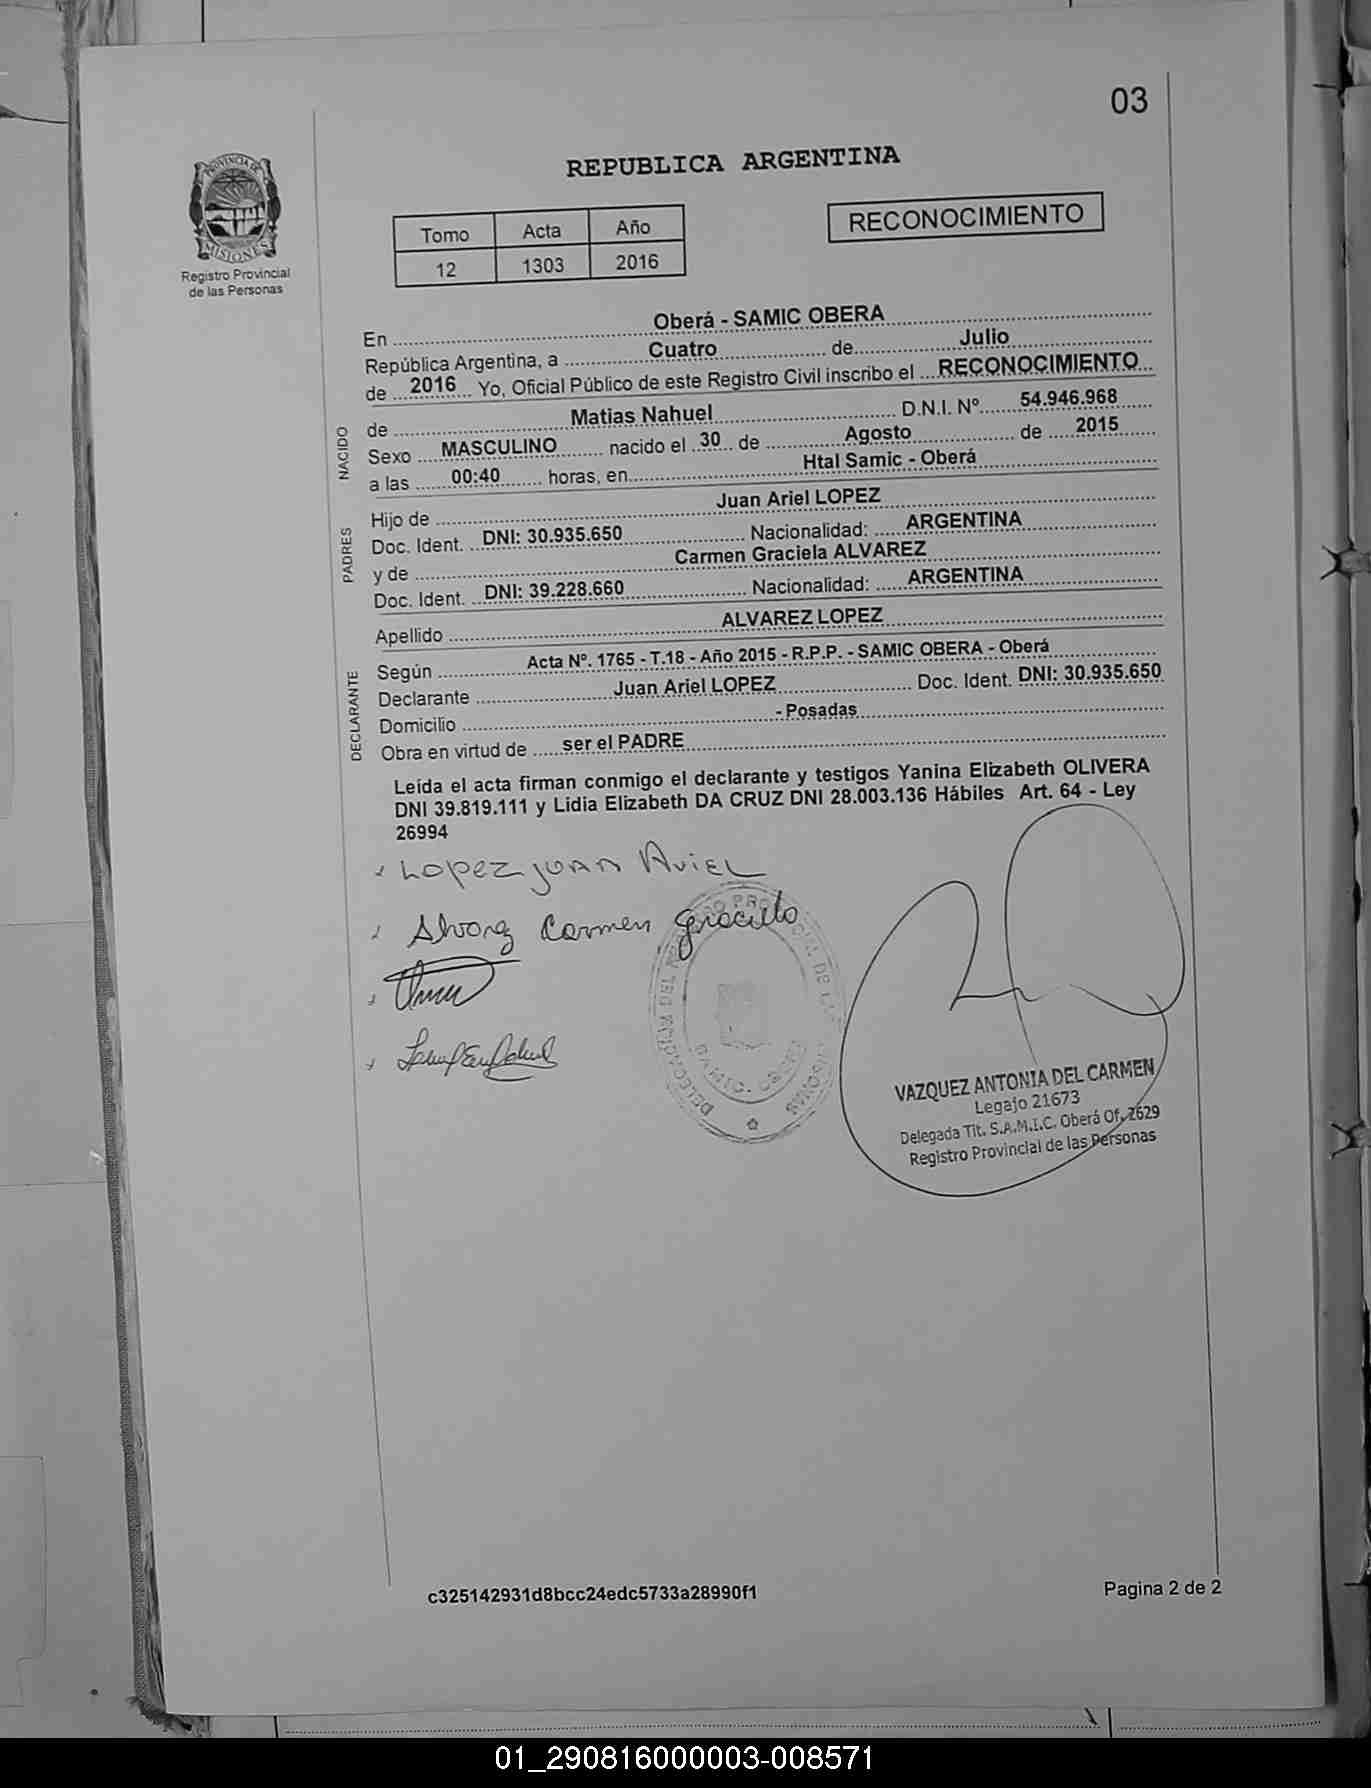 03
PROVINCIA DE
MISIONES
Registro Provincial
de las Personas
REPUBLICA ARGENTINA
Tomo Acta Año
12 1303 2016
RECONOCIMIENTO
En Oberá - SAMIC OBERA
República Argentina, a Cuatro de Julio
de 2016 Yo, Oficial Público de este Registro Civil inscribo el RECONOCIMIENTO
NACIDO
de Matias Nahuel D.N.I. Nº 54.946.968
Sexo MASCULINO nacido el 30 de Agosto de 2015
a las 00:40 horas, en Htal Samic - Oberá
PADRES
Hijo de Juan Ariel LOPEZ
Doc. Ident. DNI: 30.935.650 Nacionalidad: ARGENTINA
y de Carmen Graciela ALVAREZ
Doc. Ident. DNI: 39.228.660 Nacionalidad: ARGENTINA
Apellido ALVAREZ LOPEZ
DECLARANTE
Según Acta Nº. 1765 - T.18 - Año 2015 - R.P.P. - SAMIC OBERA - Oberá
Declarante Juan Ariel LOPEZ Doc. Ident. DNI: 30.935.650
Domicilio - Posadas
Obra en virtud de ser el PADRE
Leída el acta firman conmigo el declarante y testigos Yanina Elizabeth OLIVERA
DNI 39.819.111 y Lidia Elizabeth DA CRUZ DNI 28.003.136 Hábiles Art. 64 - Ley
26994
Lopez juan Ariel
Alvarez Carmen Graciela
DELEGACION DEL REGISTRO PROVINCIAL DE LAS PERSONAS
SAMIC. OBERA
VAZQUEZ ANTONIA DEL CARMEN
Legajo 21673
Delegada Tit. S.A.M.I.C. Oberá Of. 2629
Registro Provincial de las Personas
c325142931d8bcc24edc5733a28990f1
Pagina 2 de 2
01_290816000003-008571